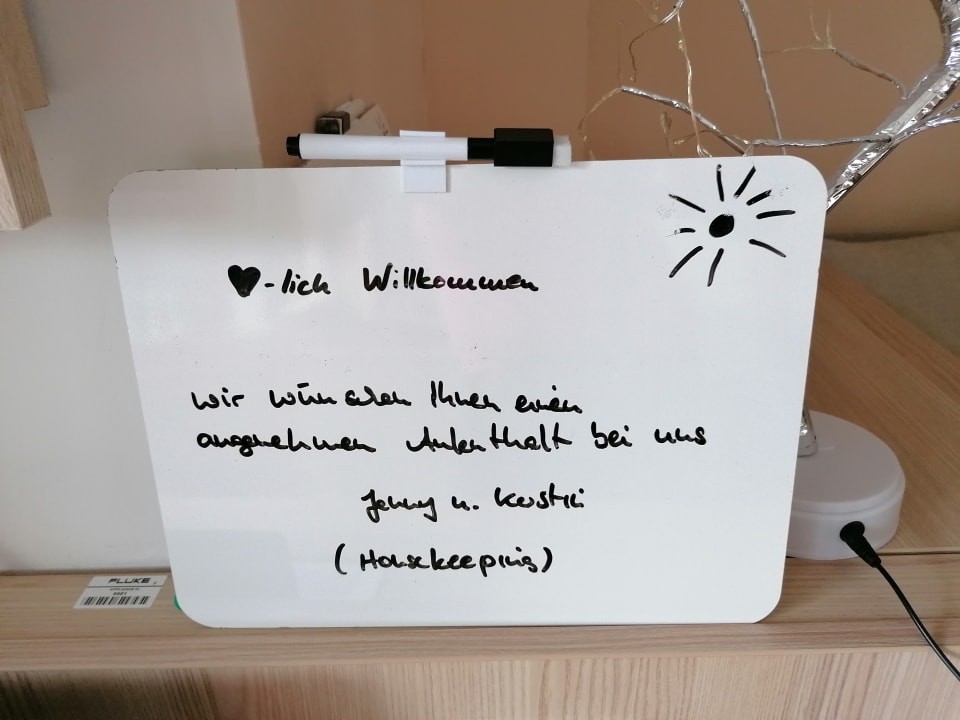 ♥-lich Willkommen
wir wünschen Ihnen einen
angenehmen Aufenthalt bei uns
Jenny u. Kerstin
(Housekeeping)
FLUKE